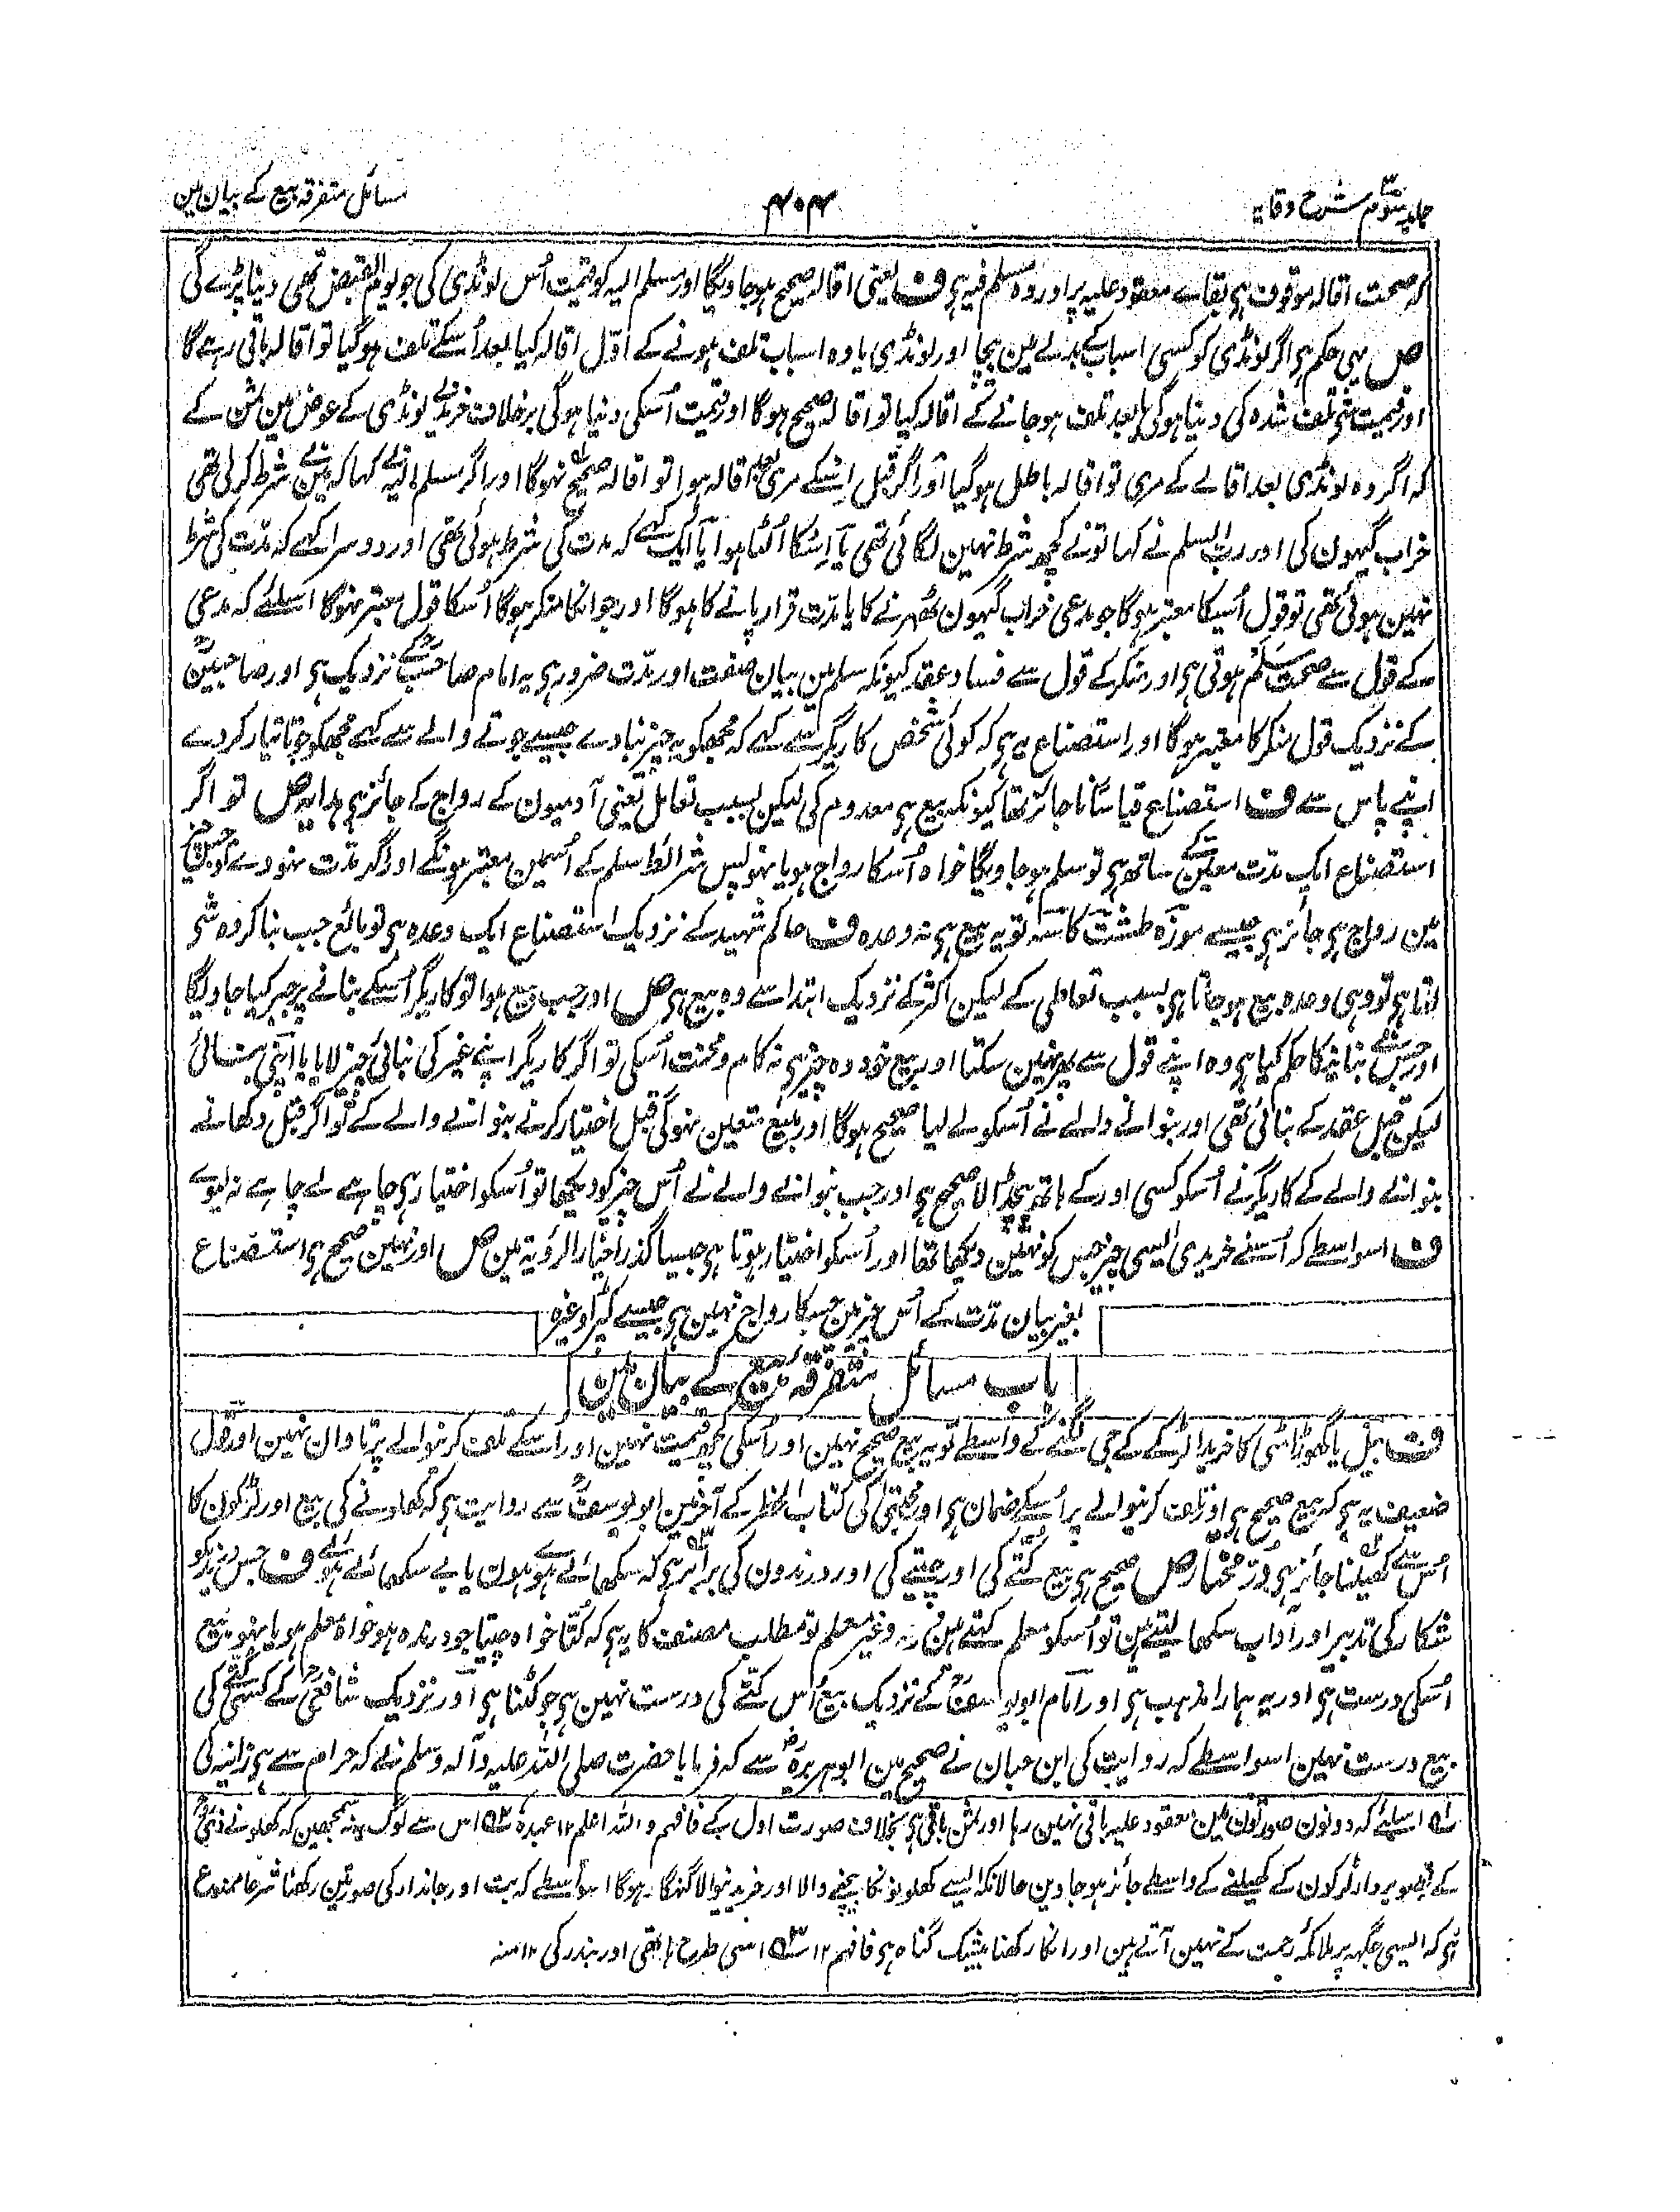 جلد سوم شرح وقایہ
۴۰۴
مسائل متفرقہ بیع کے بیان مین
کہ صحت اقالہ موقوف ہی بقاے معقود علیہ پر اور وہ مسلم فیہ ہی ف یعنی اقالہ صحیح ہو جاویگا اور مسلم الیہ کو قیمت اُس لونڈی کی جو یوم القبض تھی دینا پڑے گی
ص یہی حکم ہی اگر لونڈی کو کسی اسباب کے بدلے مین بیچا اور لونڈی یا وہ اسباب تلف ہونے کے اوّل اقالہ کیا بعد اُسکے تلف ہو گیا تو اقالہ باقی رہے گا
اور قیمت شے تلف شدہ کی دینا ہوگی یا بعد تلف ہو جانے کے اقالہ کیا تو اقالہ صحیح ہوگا اور قیمت اُسکی دینا ہوگی برخلاف خرید لونڈی کے عوض مین ثمن کے
کہ اگر وہ لونڈی بعد اقالے کے مری تو اقالہ باطل ہو گیا اور اگر قبل اسکے مری بعد اقالہ ہوا تو اقالہ صحیح نہوگا اور اگر مسلم الیہ نے کہا کہ مین نے شرط کر لی تھی
خراب گیہون کی اور رب السلم نے کہا تونے کچھ شرط نہین لگائی تھی یا اِسکا اُلٹا ہوا یا ایک کہے کہ مدت کی شرط ہوئی تھی اور دوسرا کہے کہ مدّت کی شرط
نہین ہوئی تھی تو قول اُسیکا معتبر ہوگا جو مدعی خراب گیہون ٹھہرنے کا یا مدّت قرار پانے کا ہوگا اور جو انکا منکر ہوگا اُسکا قول معتبر نہوگا اسلیے کہ مدعی
کے قول سے صحت سلم ہوتی ہی اور منکر کے قول سے فساد عقد کیونکہ سلم مین بیان صفت اور مدّت ضرور ہی یہ امام صاحبؒ کے نزدیک ہی اور صاحبینؒ
کے نزدیک قول منکر کا معتبر ہوگا اور استصناع یہ ہی کہ کوئی شخص کاریگر سے کہے کہ مجھکو یہ چیز بنا دے جیسے جوتے والے سے کہے مجھکو جوتا تیار کر دے
اپنے پاس سے ف استصناع قیاسًا ناجائز تھا کیونکہ بیع ہی معدوم کی لیکن بسبب تعامل یعنی آدمیون کے رواج کے جائز ہی ہدایہ ص تو اگر
استصناع ایک مدّت معیّن کے ساتھ ہی تو سلم ہو جاویگا خواہ اُسکا رواج ہو یا نہو پس شرائط سلم کے اُسمین معتبر ہونگے اور اگر مدّت نہووے تو جس چیز
مین رواج ہی جائز ہی جیسے موزہ طشت کاسہ تو یہ بیع ہی نہ وعدہ ف حاکم شہید کے نزدیک استصناع ایک وعدہ ہی تو بائع جب بنا کر وہ شی
لاتا ہی تو وہی وعدہ بیع ہو جاتا ہی بسبب تعاطی کے لیکن اکثر کے نزدیک ابتدا سے وہ بیع ہی ص اور جب بیع ہوا تو کاریگر اُسکے بنانے پر جبر کیا جاویگا
اور جس نے بنانیکا حکم کیا ہی وہ اپنے قول سے پھر نہین سکتا اور بیع خود وہ چیز ہی نہ کام و محنت اُسکی تو اگر کاریگر اپنے غیر کی بنائی چیز لایا یا اپنی بنائی
لیکن قبل عقد کے بنائی تھی اور بنوانے والے نے اُسکو لے لیا صحیح ہوگا اور بیع متعین نہوگی قبل اختیار کرنے بنوانے والے کے تو اگر قبل دکھانے
بنوانے والے کے کاریگر نے اُسکو کسی اور کے ہاتھ بیچ ڈالا صحیح ہی اور جب بنوانے والے نے اُس چیز کو دیکھا تو اُسکو اختیار ہی چاہے لے چاہے نہ لیوے
ف اسواسطے کہ اُسنے خریدی ایسی چیز جس کو نہین دیکھا تھا اور اُسکو اختیار ہوتا ہی جیسا گذرا خیار الرؤیۃ مین ص اور نہین صحیح ہی استصناع
بغیر بیان مدّت کے اُس چیز مین جسکا رواج نہین ہی جیسے کپڑا وغیرہ
باب مسائل متفرقہ بیع کے بیان مین
ف بیل یا گھوڑا مٹی کا خریدا لڑکے کے جی لگنے کے واسطے تو یہ بیع صحیح نہین اور اُسکی کچھ قیمت نہین اور اُسکے تلف کرنیوالے پر تاوان نہین اور قول
ضعیف یہ ہی کہ بیع صحیح ہی اور تلف کرنیوالے پر اُسکے ضمان ہی اور مجتبیٰ کی کتاب الحظر کے آخر مین ابو یوسفؒ سے روایت ہی کہ کھلونے کی بیع اور لڑکون کا
اُس سے کھیلنا جائز ہی درّ مختار ص صحیح ہی بیع کتّے کی اور چیتے کی اور درندون کی برابر ہی کہ سکھائے ہوے ہون یا بے سکھائے ہوے ف جس درندیکو
شکار کی تدبیر اور آداب سکھا لیتے ہین تو اُسکو معلم کہتے ہین ورنہ غیر معلم تو مطلب مصنف کا یہ ہی کہ کُتّا خواہ چیتا جو درندہ ہو خواہ معلم ہو یا نہو بیع
اُسکی درست ہی اور یہ ہمارا مذہب ہی اور امام ابو یوسفؒ کے نزدیک بیع اُس کتّے کی درست نہین ہی جو کٹنا ہی اور نزدیک شافعیؒ کے کسی کتّے کی
بیع درست نہین اسواسطے کہ روایت کی ابن حبان نے صحیح مین ابو ہریرہؓ سے کہ فرمایا حضرت صلی اللہ علیہ وآلہ وسلم نے کہ حرام سے ہی زانیہ کی
۱؎ اسلیے کہ دونون صورتون مین معقود علیہ باقی نہین رہا اور ثمن باقی ہی بخلاف صورت اول کے فافہم واللہ اعلم ۱۲ عبدہ ۲؎ اس سے لوگ یہ نہ سمجھین کہ کھلونے ذی روح
کے تصویر دار لڑکون کے کھیلنے کے واسطے جائز ہو جاوین حالانکہ ایسے کھلونونکا بیچنے والا اور خریدنیوالا گنہگار ہوگا اسواسطے کہ بت اور جاندار کی صورتین رکھنا شرعًا ممنوع
ہی کہ ایسی جگہہ پر ملائکہ رحمت کے نہین آتے ہین اور انکا رکھنا بیشک گناہ ہی فافہم ۱۲ ۳؎ اسی طرح ہاتھی اور بندر کی ۱۲ منہ